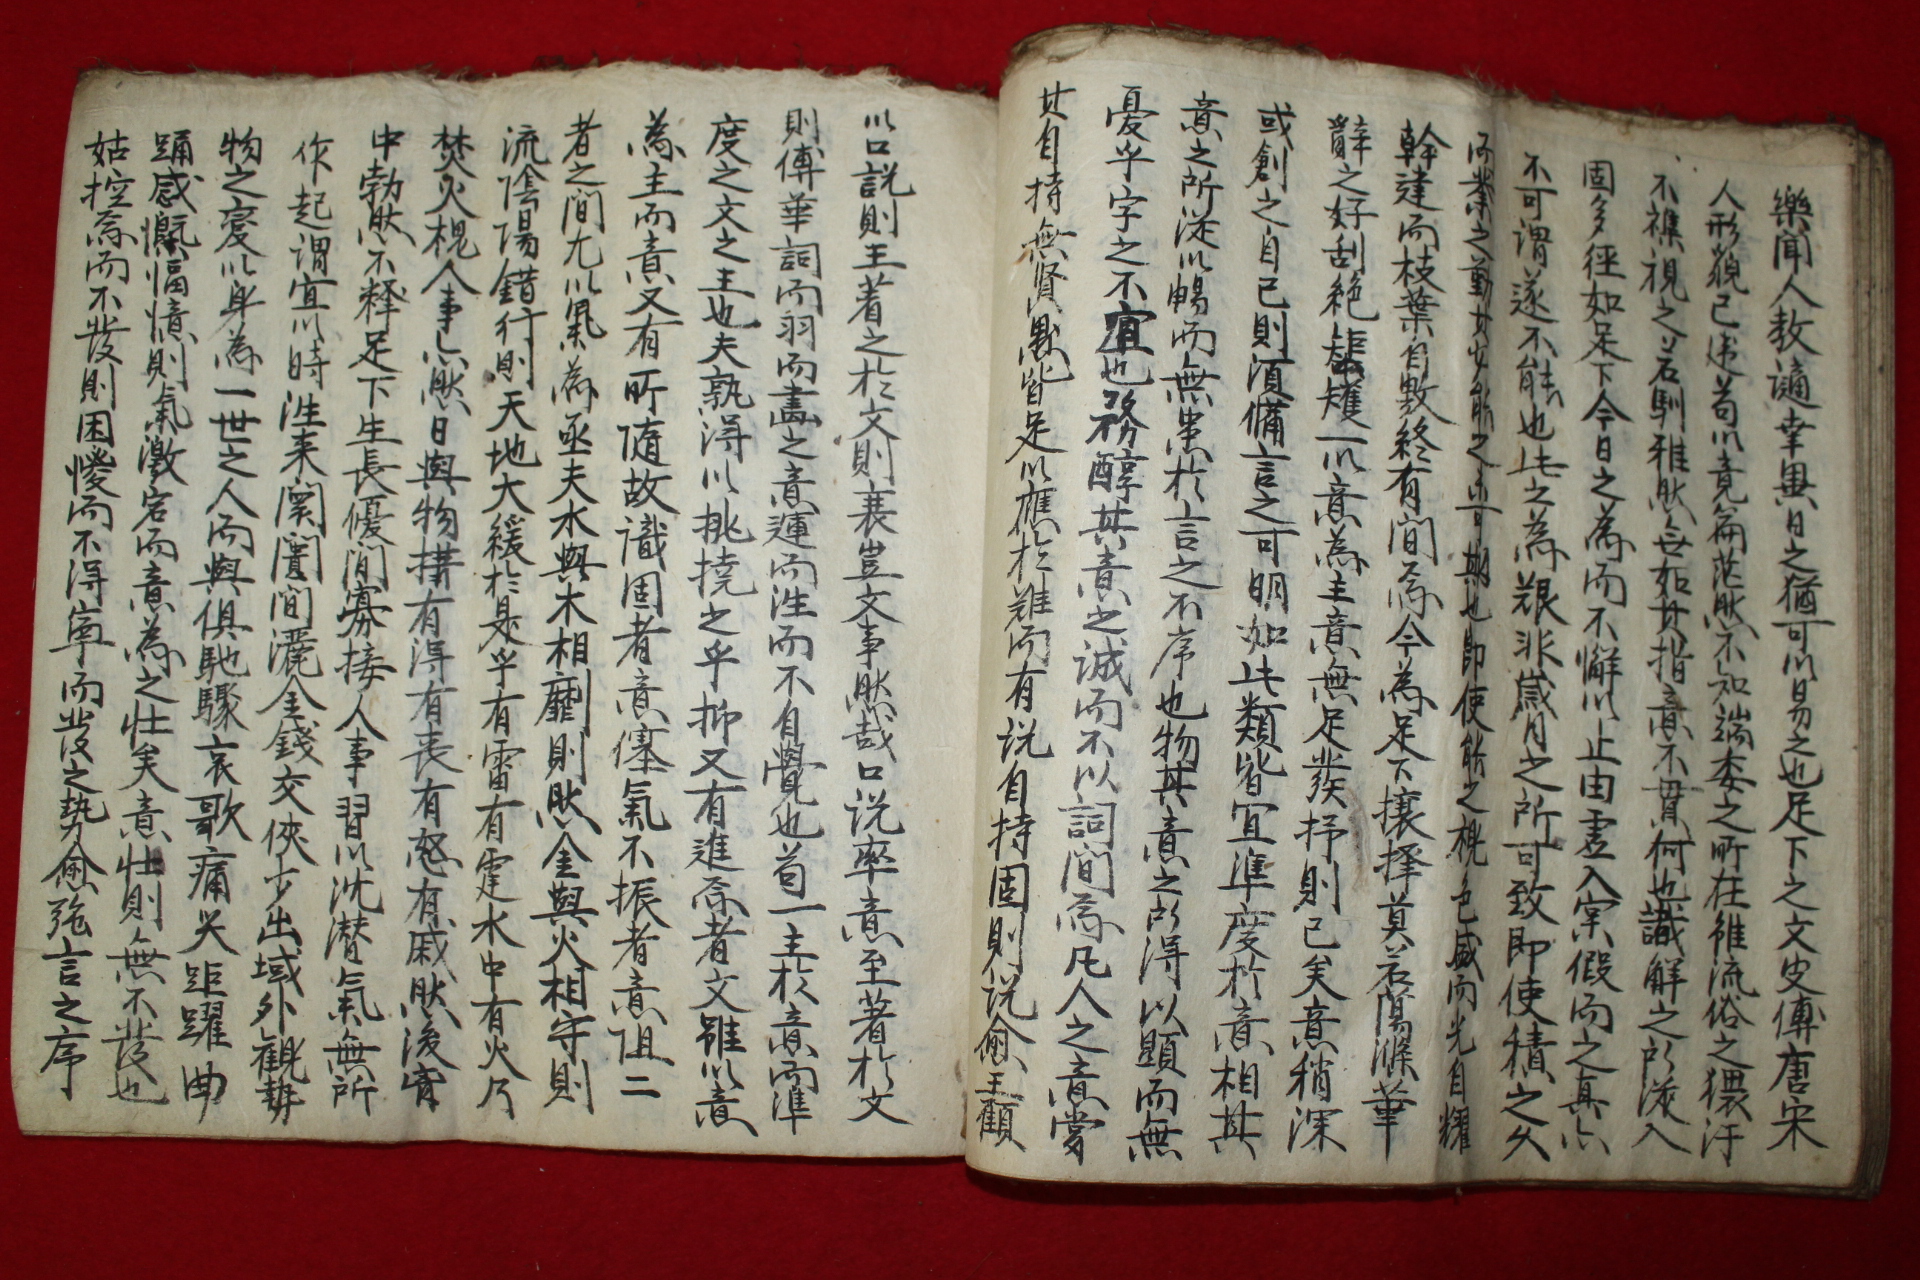 樂聞人教謫幸異日之猶可以易之也足下之文史傅唐宋
人形貌已逮苟以竟篇茫然不知端委之所在雖流俗之猥汙
不襍視之若馴雅然無如其指意不貫何也識解之所淺入
固多徑如足下今日之爲而不懈以止由虛入窾假而之真亦
不可謂遂不能也此之爲艱非歲月之所可致即使積之久
而業之勤其必能之亦可期也即使能之槐色盛而光自耀
幹達而枝葉自敷終有間焉今爲足下攘擇莫若陽滌華
辭之好刮絶矩矱一以意爲主意無足發抒則已矣意稍深
或創之自己則須備言之可明如此類皆宜準度於意相其
意之所從以暢而無患於言之不序也物其意之所得以顯而無
憂乎字之不宜也務醇其意之誠而不以詞間焉凡人之意嘗
其自持無賢愚皆足以應於難而有说自持固則说愈王顧
以口説則主著之於文則衰豈文事然哉口说率意至著於文
則傅華詞而羽而畵之意運而泩而不自覺也苟一主於意而準
度之文之主也夫孰得以挑撓之乎抑又有進焉者文雖以意
爲主而意又有所隨故識固者意僿氣不振者意沮二
者之間尤以氣爲亟夫水與木相靡則然金與火相守則
流陰陽錯行則天地大緩於是乎有雷有霆水中有火乃
焚火槐人事亦然日與物搆有得有喪有怒有戚然後宵
中勃然不释足下生長優間寡接人事習以沈潛氣無所
作起謂宜以時泩来闤闠間灑金錢交俠少出域外觀勢
物之变以身爲一世之人而與俱馳驟哀歌痛哭距躍曲
踊感慨愊憶則氣激宕而意爲之壮矣意壮則無不發也
姑控焉而不發則困懮而不得寧而發之勢愈强言之序